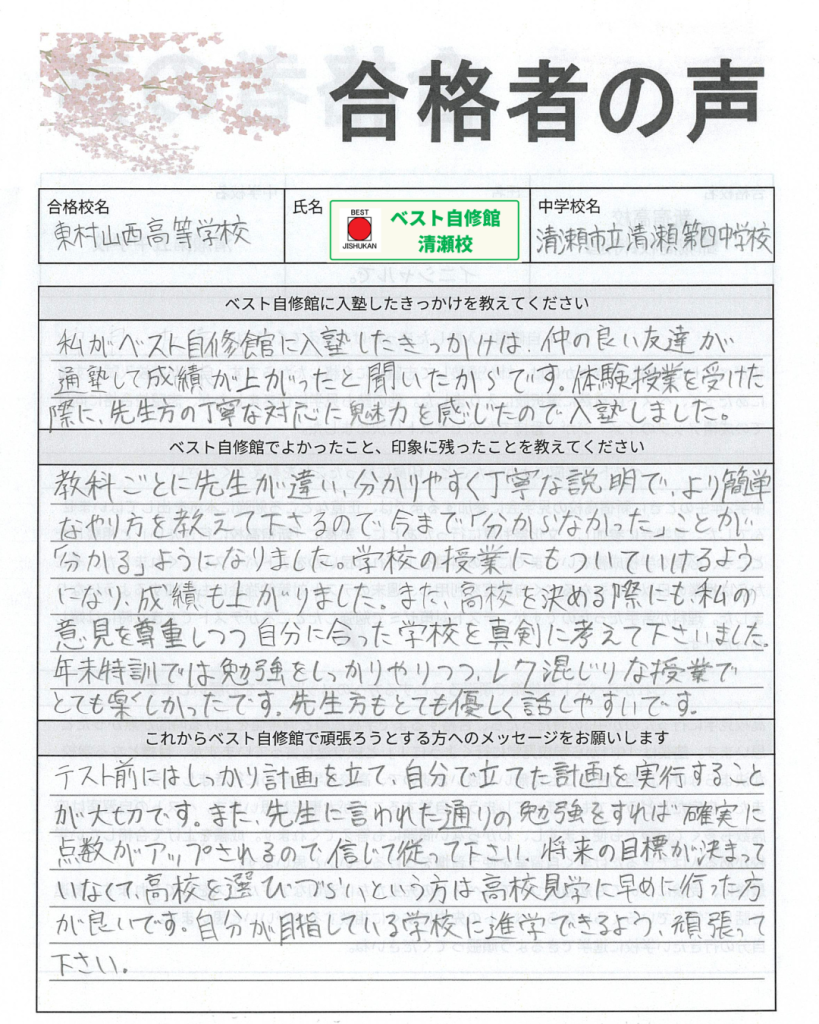 合格者の声
合格校名
東村山西高等学校
氏名
BEST
JISHUKAN
ベスト自修館
清瀬校
中学校名
清瀬市立清瀬第四中学校
ベスト自修館に入塾したきっかけを教えてください
私がベスト自修館に入塾したきっかけは、仲の良い友達が
通塾して成績が上がったと聞いたからです。体験授業を受けた
際に、先生方の丁寧な対応に魅力を感じたので入塾しました。
ベスト自修館でよかったこと、印象に残ったことを教えてください
教科ごとに先生が違い、分かりやすく丁寧な説明で、より簡単
なやり方を教えて下さるので今まで「分からなかった」ことが
「分かる」ようになりました。学校の授業にもついていけるよう
になり、成績も上がりました。また、高校を決める際にも、私の
意見を尊重しつつ自分に合った学校を真剣に考えて下さいました。
年末特訓では勉強をしっかりやりつつ、レク混じりな授業で
とても楽しかったです。先生方もとても優しく話しやすいです。
これからベスト自修館で頑張ろうとする方へのメッセージをお願いします
テスト前にはしっかり計画を立て、自分で立てた計画を実行すること
が大切です。また、先生に言われた通りの勉強をすれば確実に
点数がアップされるので信じて従って下さい。将来の目標が決まって
いなくて、高校を選びづらいという方は高校見学に早めに行った方
が良いです。自分が目指している学校に進学できるよう、頑張って
下さい。